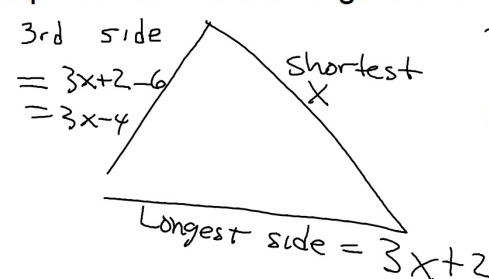 3rd side
= 3x+2-6
= 3x-4
shortest
x
Longest side = 3x+2